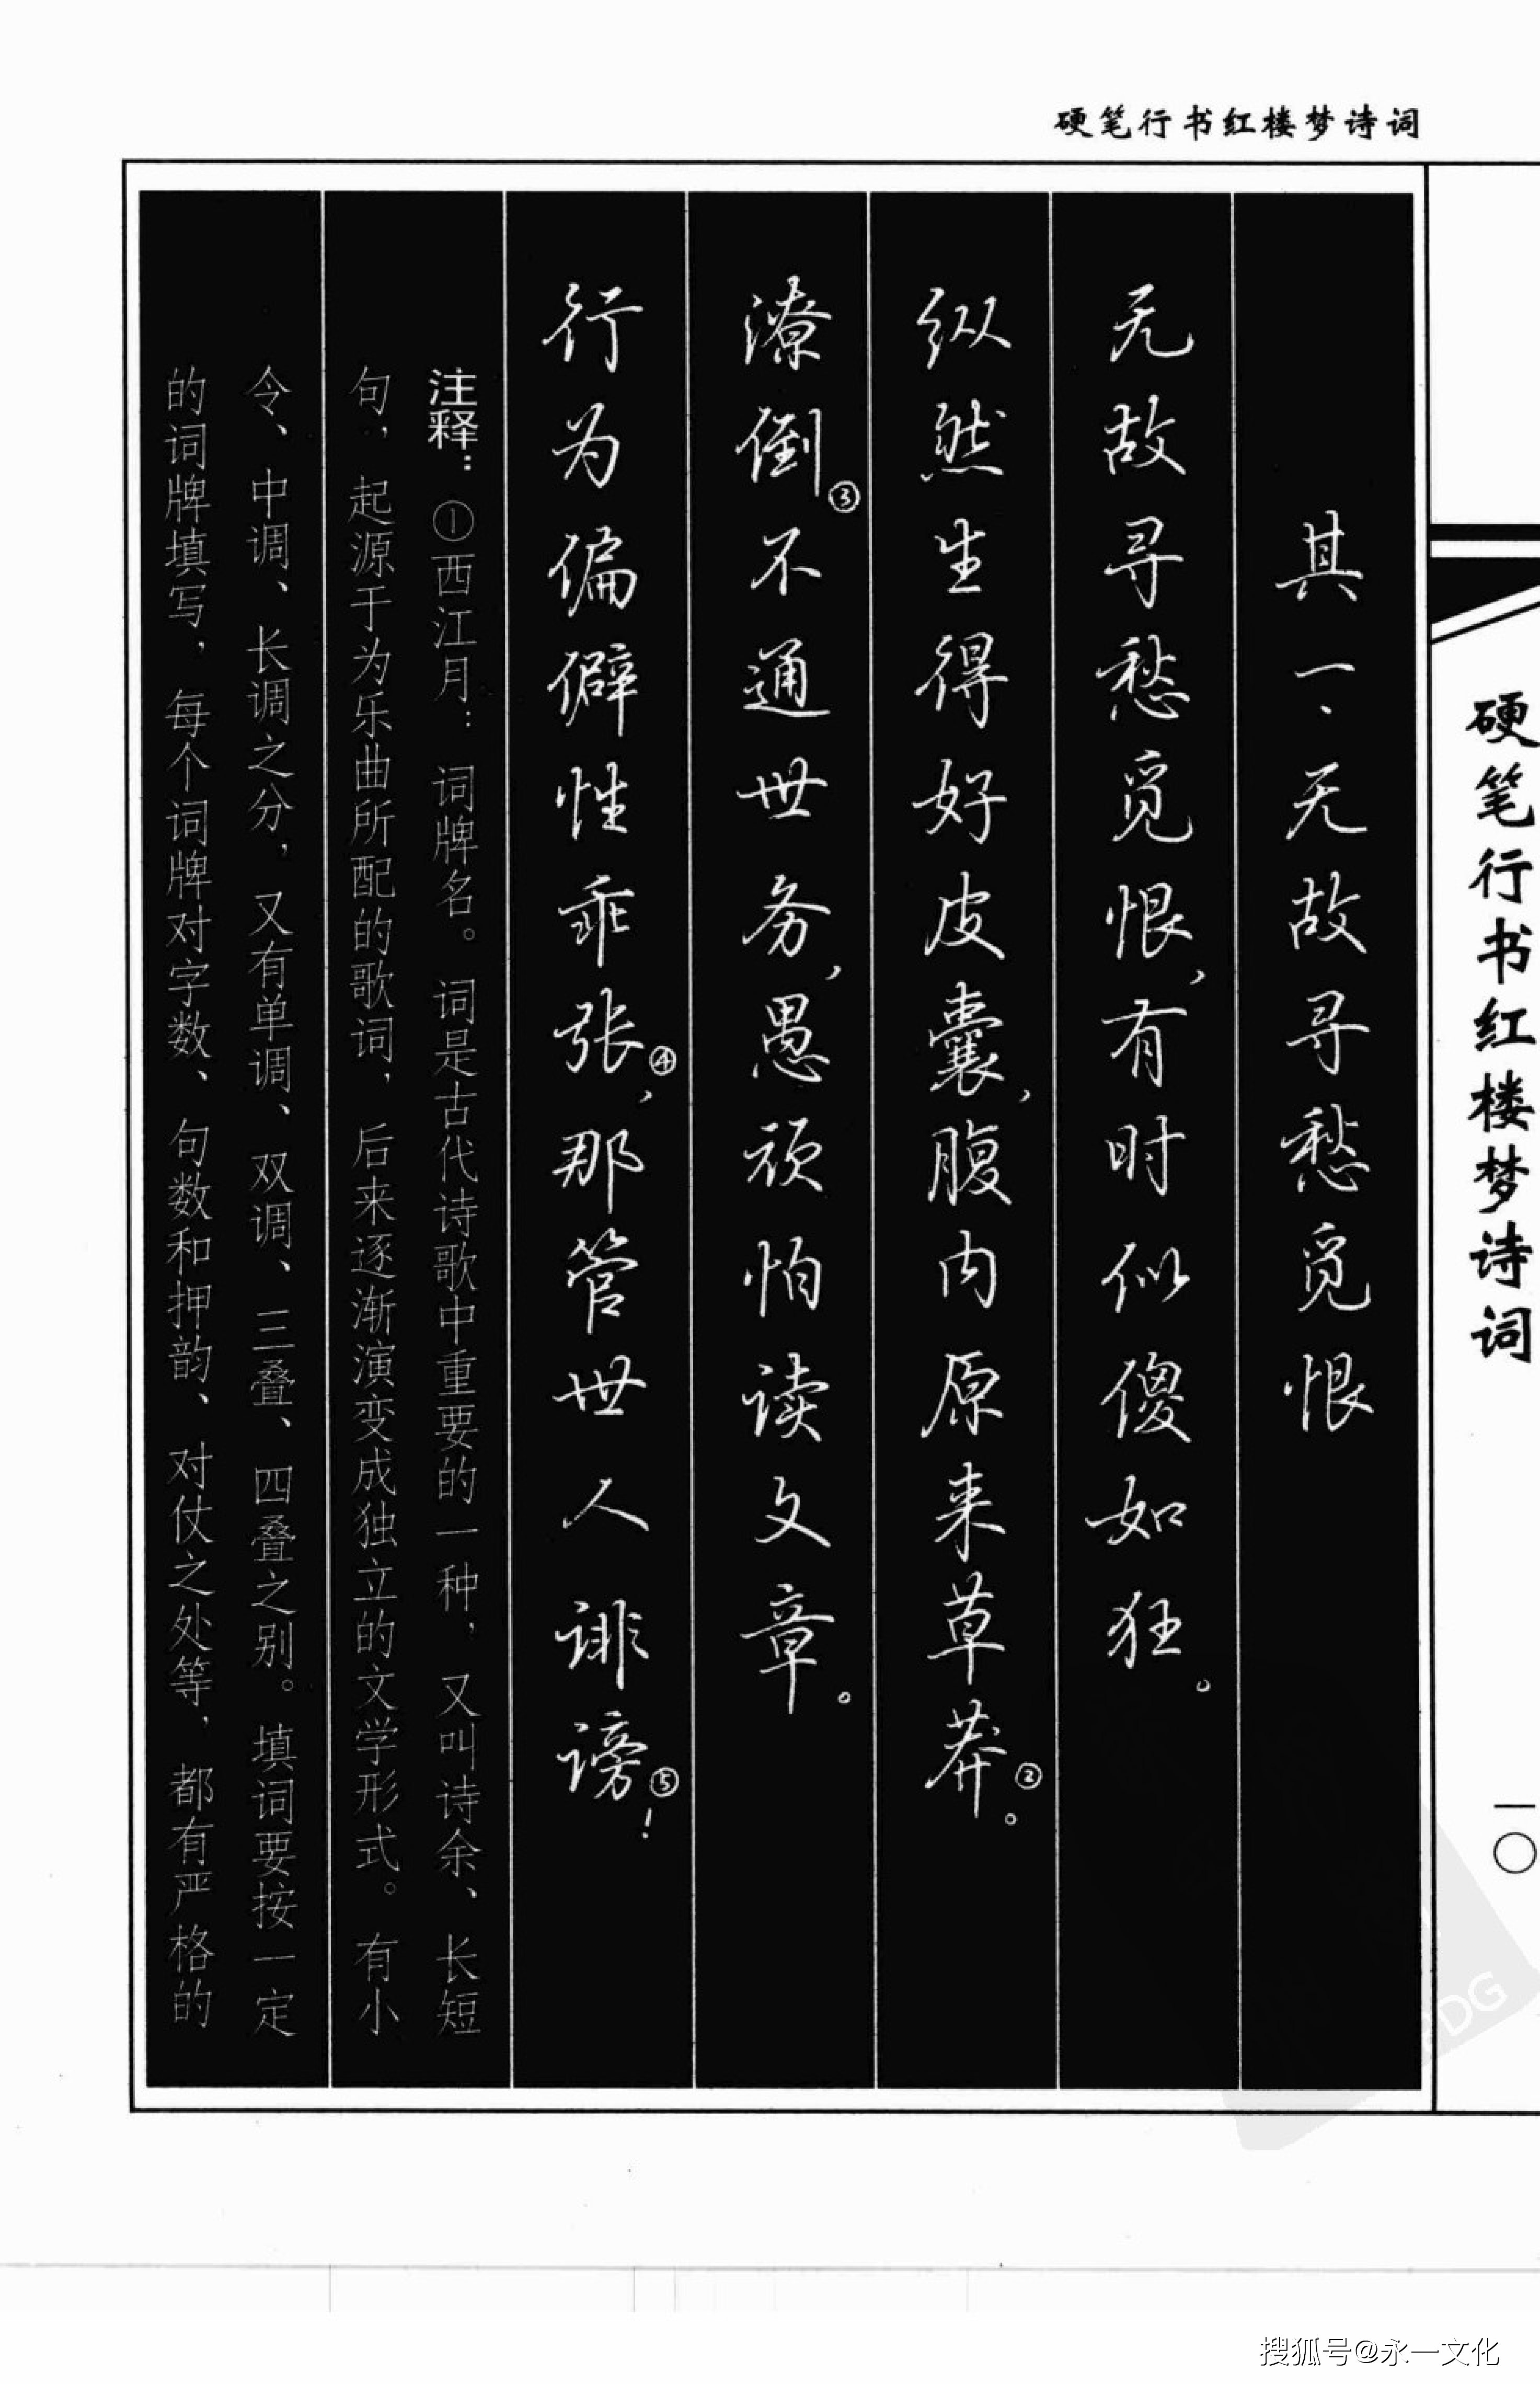 硬笔行书红楼梦诗词
其一、无故寻愁觅恨
无故寻愁觅恨,有时似傻如狂。
纵然生得好皮囊,腹内原来草莽②。
潦倒③不通世务,愚顽怕读文章。
行为偏僻性乖张④,那管世人诽谤⑤!
注释:①西江月:词牌名。词是古代诗歌中重要的一种,又叫诗余、长短
句,起源于为乐曲所配的歌词,后来逐渐演变成独立的文学形式。有小
令、中调、长调之分,又有单调、双调、三叠、四叠之别。填词要按一定
的词牌填写,每个词牌对字数、句数和押韵、对仗之处等,都有严格的
硬笔行书红楼梦诗词
一〇
DG
搜狐号@永一文化